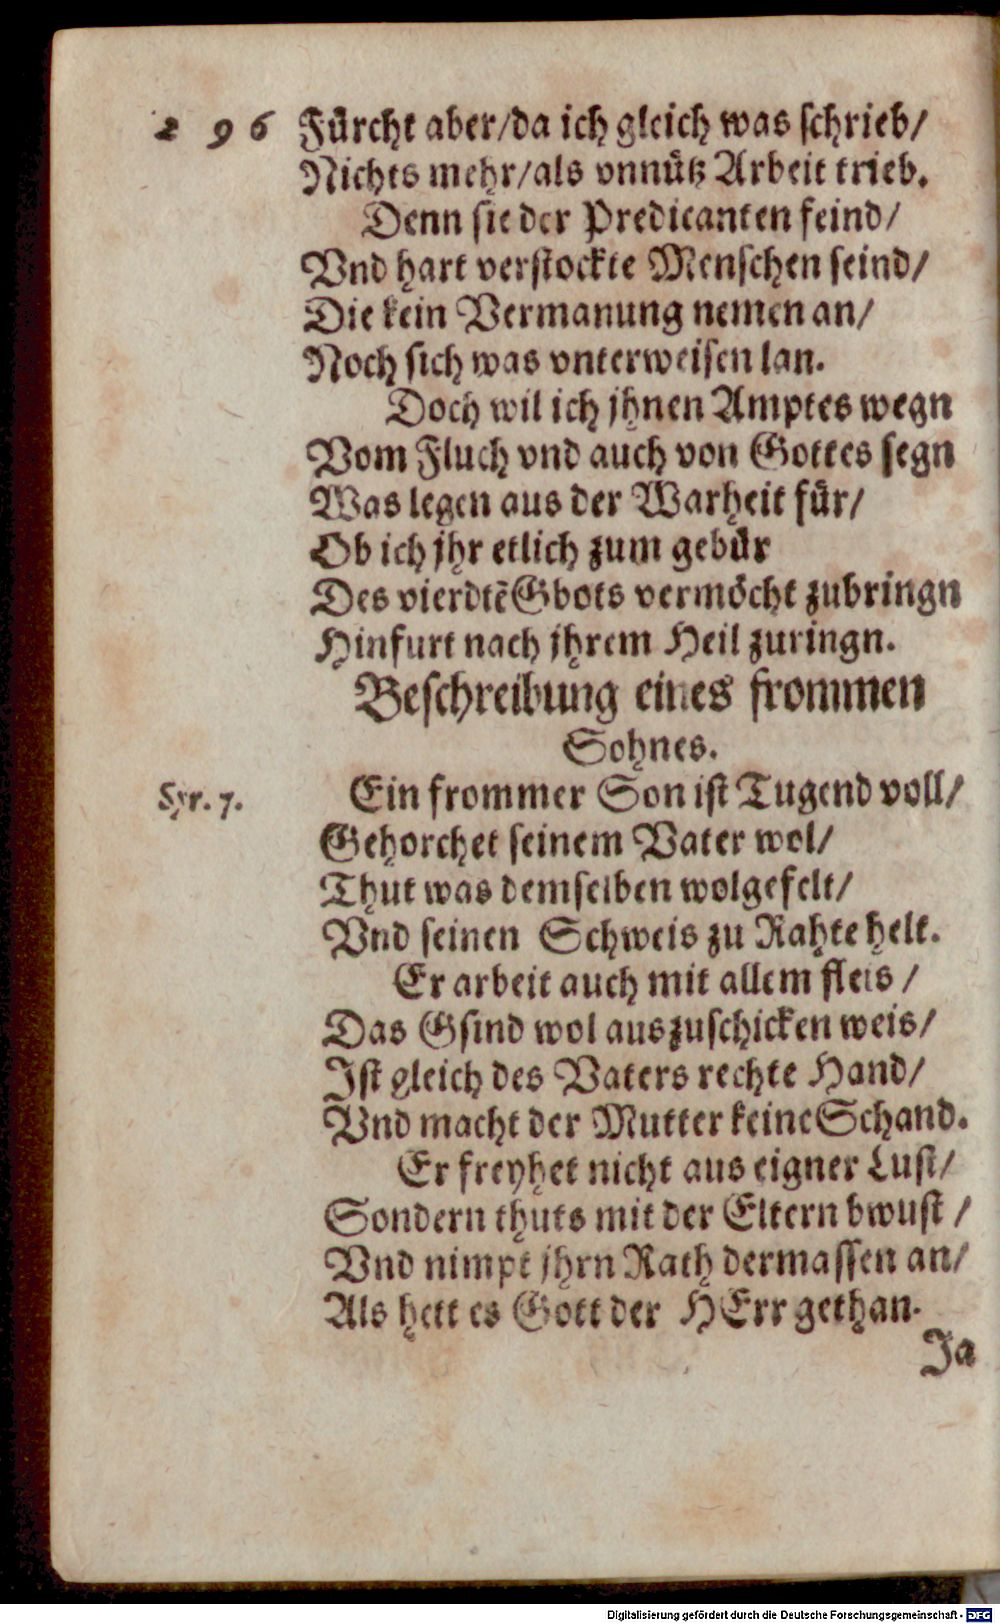 2 9 6 Fürcht aber/da ich gleich was schrieb/
Nichts mehr/als vnnütz Arbeit trieb.
Denn sie der Predicanten feind/
Vnd hart verstockte Menschen seind/
Die kein Vermanung nemen an/
Noch sich was vnterweisen lan.
Doch wil ich jhnen Amptes wegn
Vom Fluch vnd auch von Gottes segn
Was legen aus der Warheit für/
Ob ich jhr etlich zum gebür
Des vierdtẽ Gbots vermöcht zubringn
Hinfurt nach jhrem Heil zuringn.
Beschreibung eines frommen
Sohnes.
Syr. 7. Ein frommer Son ist Tugend voll/
Gehorchet seinem Vater wol/
Thut was demselben wolgefelt/
Vnd seinen Schweis zu Rahte helt.
Er arbeit auch mit allem fleis /
Das Gsind wol auszuschicken weis/
Ist gleich des Vaters rechte Hand/
Vnd macht der Mutter keine Schand.
Er freyhet nicht aus eigner Lust/
Sondern thuts mit der Eltern bwust /
Vnd nimpt jhrn Rath dermassen an/
Als hett es Gott der HErr gethan.
Ja
Digitalisierung gefördert durch die Deutsche Forschungsgemeinschaft - DFG